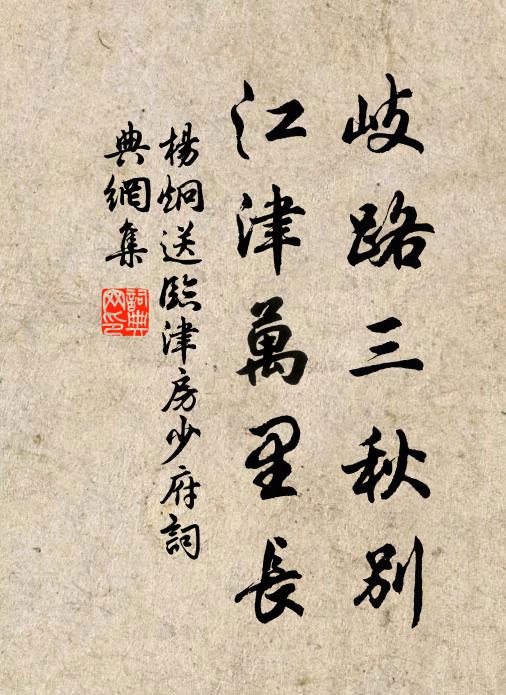 岐路三秋别
江津萬里長
楊炯送臨津房少府詞
典網集
詞典
网印